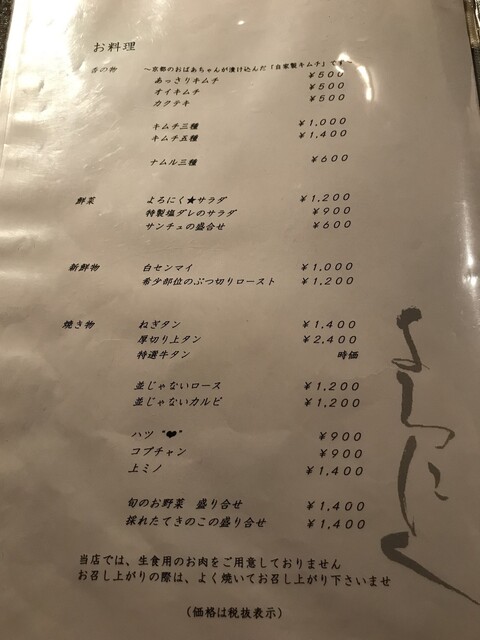 お料理
香の物 ～京都のおばあちゃんが漬け込んだ「自家製キムチ」です～
あっさりキムチ ¥500
オイキムチ ¥500
カクテキ ¥500
キムチ三種 ¥1,000
キムチ五種 ¥1,400
ナムル三種 ¥600
鮮菜 よろにく★サラダ ¥1,200
特製塩ダレのサラダ ¥900
サンチュの盛合せ ¥600
新鮮物 白センマイ ¥1,000
希少部位のぶつ切りロースト ¥1,200
焼き物 ねぎタン ¥1,400
厚切り上タン ¥2,400
特選牛タン 時価
並じゃないロース ¥1,200
並じゃないカルビ ¥1,200
ハツ "❤" ¥900
コプチャン ¥900
上ミノ ¥1,400
旬のお野菜 盛り合せ ¥1,400
採れたてきのこの盛り合せ ¥1,400
当店では、生食用のお肉をご用意しておりません
お召し上がりの際は、よく焼いてお召し上がり下さいませ
(価格は税抜表示)
よろにく